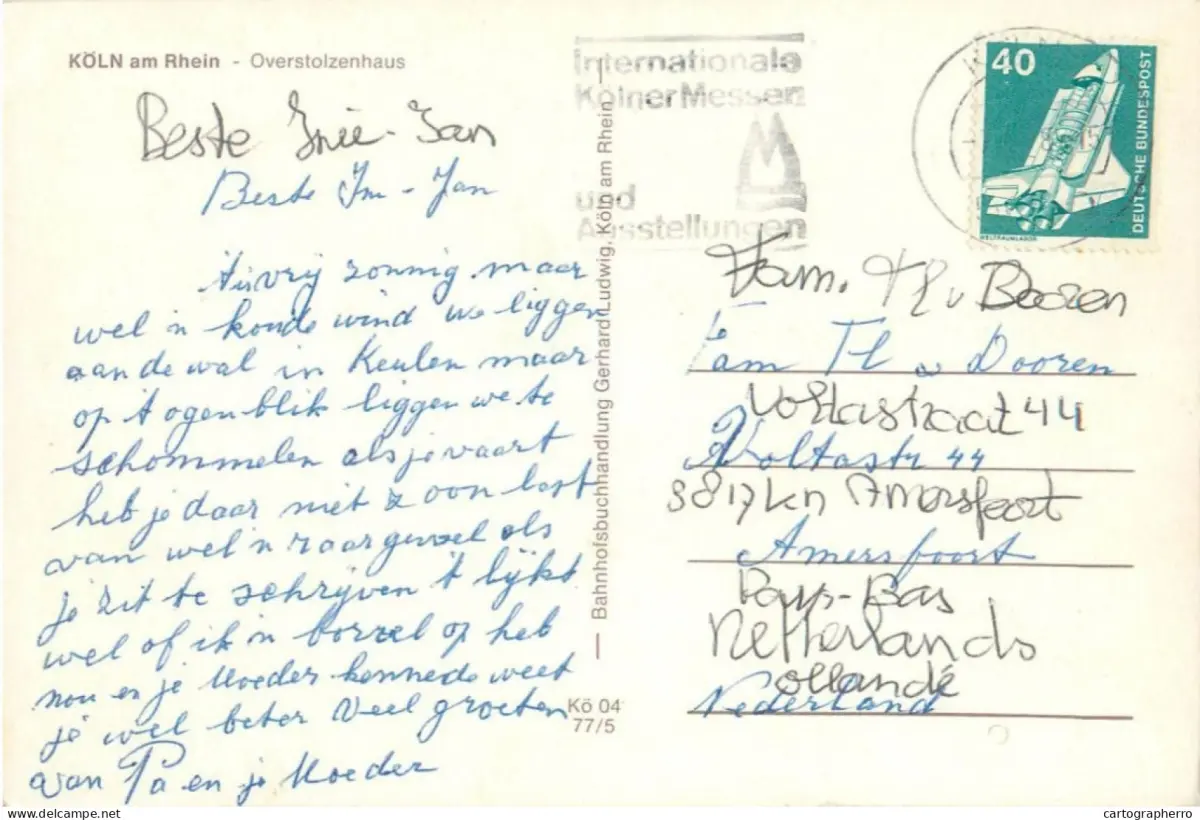 KÖLN am Rhein - Overstolzenhaus
Beste Inie-Jan
Beste In - Jan
't is vrij zonnig maar
wel 'n koude wind we liggen
aan de wal in Keulen maar
op 't ogenblik liggen we te
schommelen als je vaart
heb je daar niet zoon last
van wel 'n raar gevoel als
je zit te schrijven 't lijkt
wel of ik 'n borrel op heb
nou en je Moeder kennede weet
je wel beter Veel groeten
van Pa en je Moeder
Bahnhofsbuchhandlung Gerhard Ludwig, Köln am Rhein
Kö 04
77/5
Internationale
Kölner Messen
und
Ausstellungen
40
DEUTSCHE BUNDESPOST
WELTRAUMLABOR
Fam. Th v Dooren
Fam Th v Dooren
Voltastraat 44
Voltastr 44
3817 KN Amersfoort
Amersfoort
Pays-Bas
Netherlands
ollandé
Nederland
cartographerro